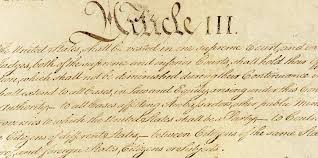 Article III.
the United States, shall be vested in one supreme Court, and in
Judges, both of the supreme and inferior Courts, shall hold their off
tion, which shall not be diminished during their Continuance in
shall extend to all Cases, in Law and Equity, arising under this Con
Authority;— to all Cases affecting Ambassadors, other public Minist
oversies to which the United States shall be a Party;— to Contro
Citizens of different States,— between Citizens of the same State
and foreign States, Citizens or Subjects.